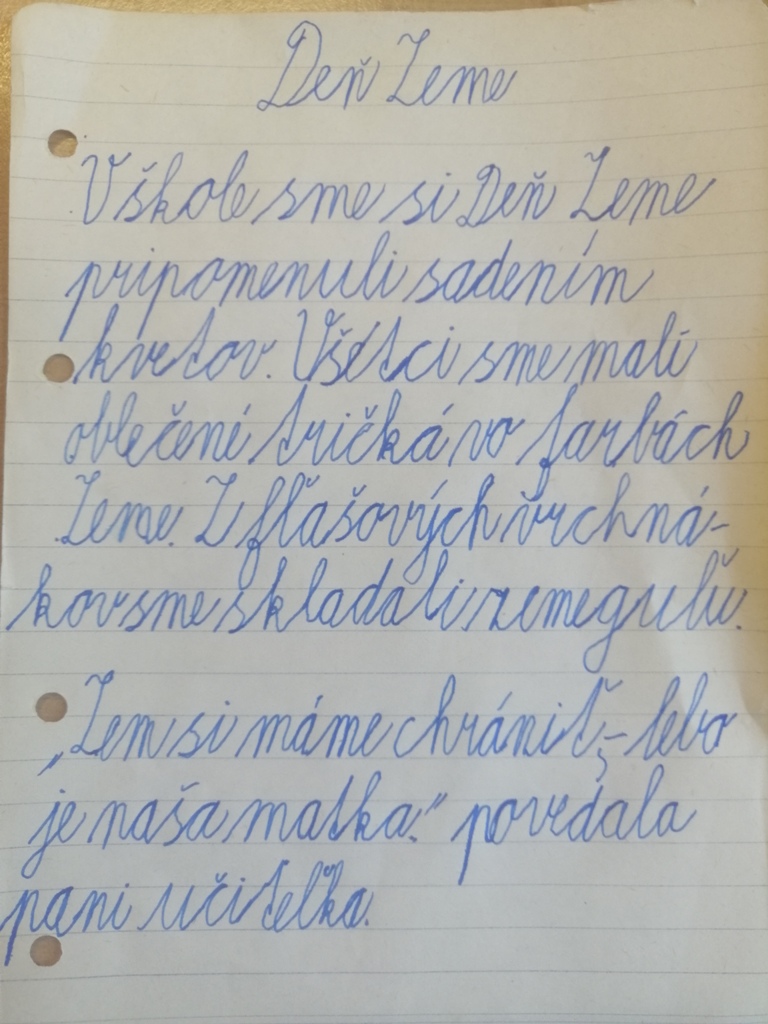 Deň Zeme
V škole sme si Deň Zeme
pripomenuli sadením
kvetov. Všetci sme mali
oblečené tričká vo farbách
Zeme. Z fľašových vrchná-
kov sme skladali zemeguľu.
„Zem si máme chrániť, – lebo
je naša matka." povedala
pani učiteľka.